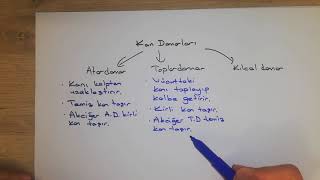 Kan Damarları
Atardamar
Toplardamar
Kılcal damar
• Kanı kalpten
uzaklaştırır.
• Temiz kan taşır
• Akciğer A.D. kirli
kan taşır.
• Vücuttaki
kanı toplayıp
kalbe getirir.
• Kirli kan taşır.
• Akciğer T.D temiz
kan taşır.